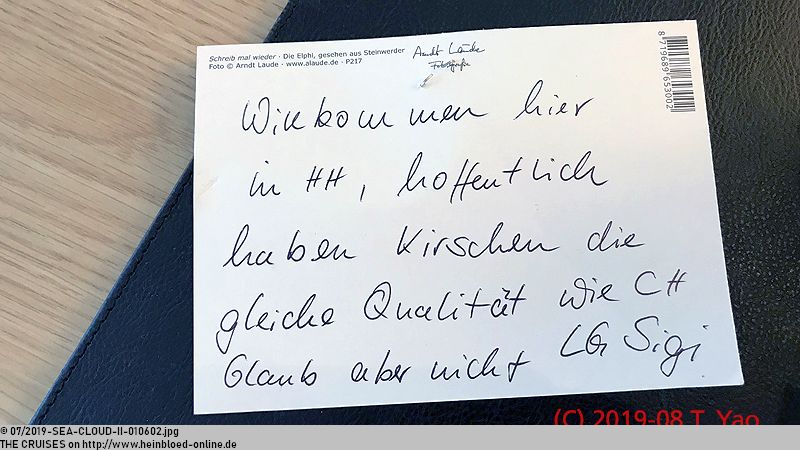 Schreib mal wieder · Die Elphi, gesehen aus Steinwerder
Foto © Arndt Laude · www.alaude.de · P217
Arndt Laude
Fotografie
8 719689 653002
Willkommen hier
in HH, hoffentlich
haben Kirschen die
gleiche Qualität wie CH
Glaub aber nicht LG Sigi
(C) 2019-08 T. Yao
© 07/2019-SEA-CLOUD-II-010602.jpg
THE CRUISES on http://www.heinbloed-online.de